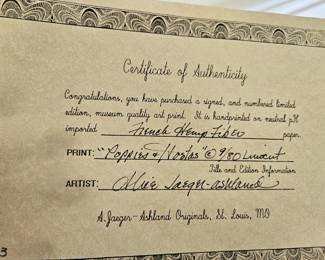 Certificate of Authenticity
Congratulations, you have purchased a signed, and numbered limited
edition, museum quality art print. It is handprinted on neutral pH
imported French Hemp Fiber paper.
PRINT: "Poppies + Hostas" © 9/80 Linocut
Title and Edition Information
ARTIST: Jaeger-Ashland
A. Jaeger-Ashland Originals, St. Louis, MO
3